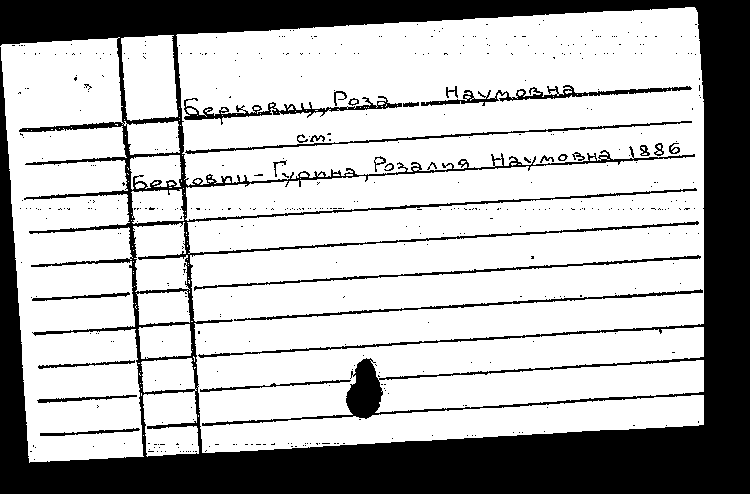 Беркович, Роза Наумовна
см:
Беркович-Гурина, Розалия Наумовна, 1886